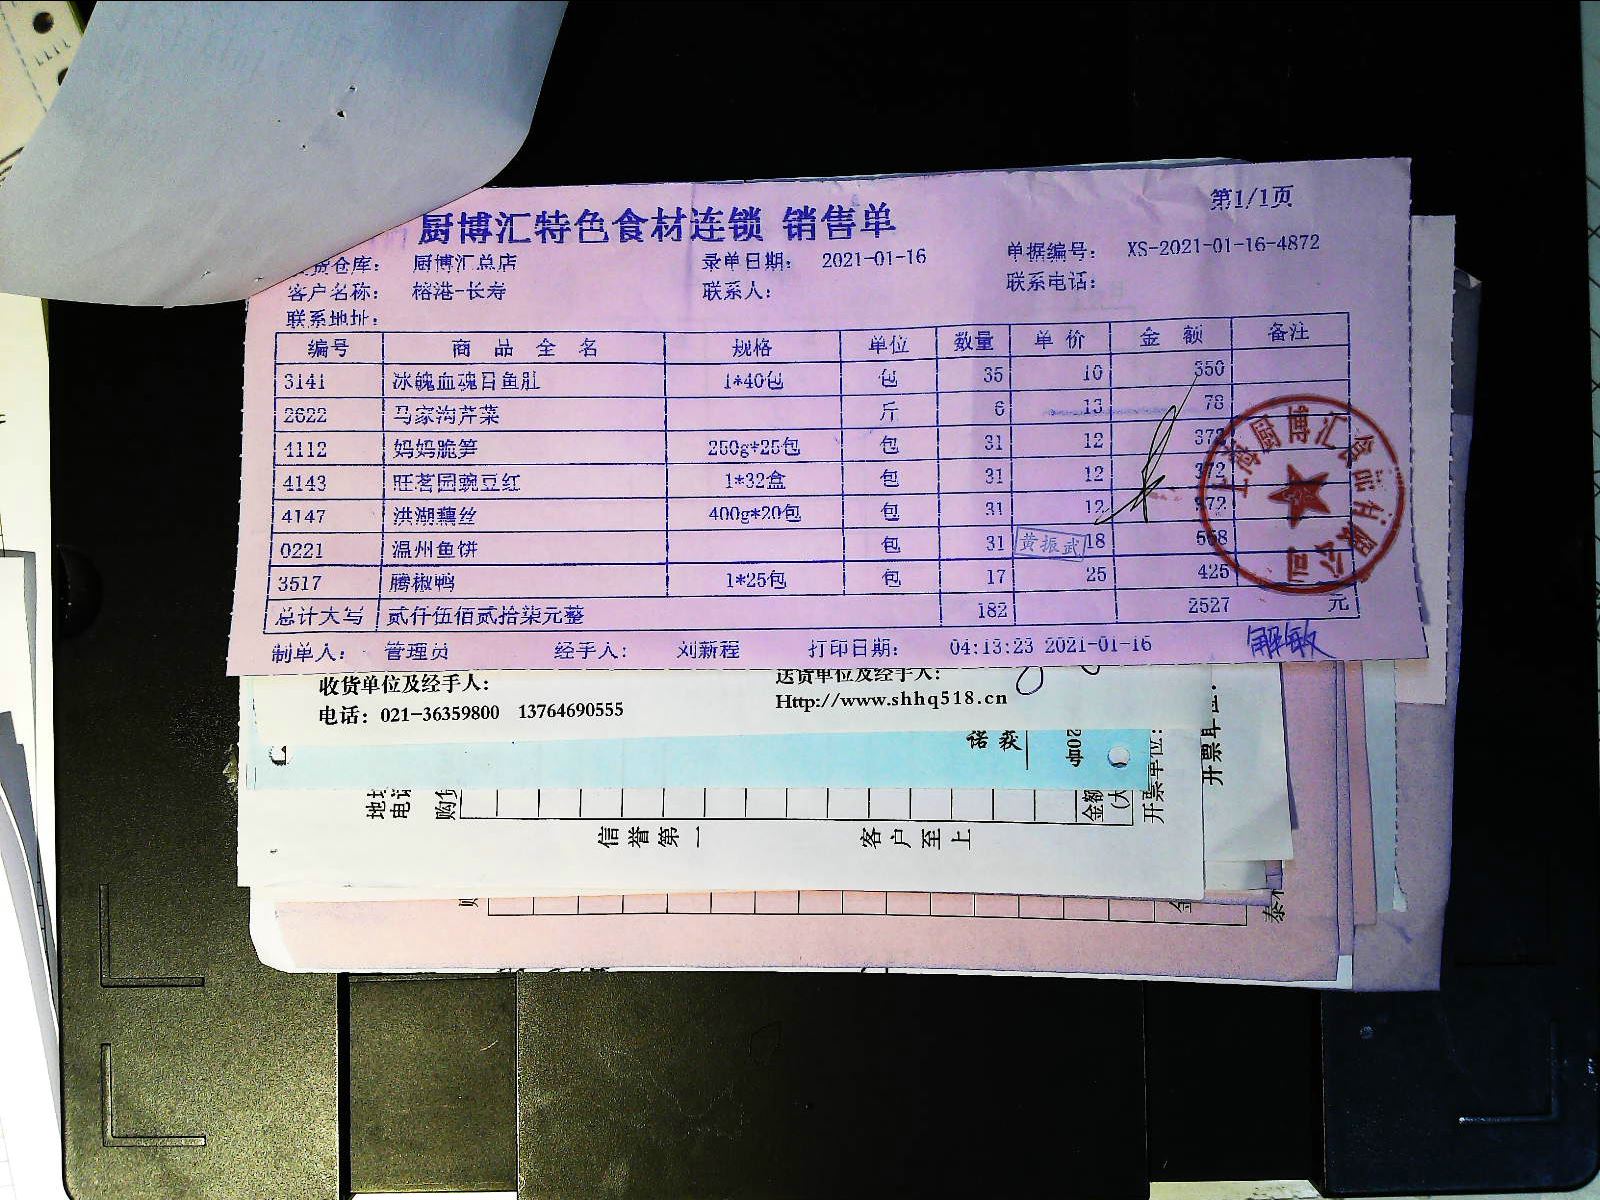 第1/1页
厨博汇特色食材连锁 销售单
货仓库： 厨博汇总店 录单日期： 2021-01-16 单据编号： XS-2021-01-16-4872
客户名称： 榕港-长寿 联系人： 联系电话：
联系地址：
编号 商品全名 规格 单位 数量 单价 金额 备注
3141 冰魄血魂目鱼肚 1*40包 包 35 10 350
2622 马家沟芹菜 斤 6 13 78
4112 妈妈脆笋 250g*25包 包 31 12 372
4143 旺茗园豌豆红 1*32盒 包 31 12 372
4147 洪湖藕丝 400g*20包 包 31 12 372
0221 温州鱼饼 包 31 18 558
3517 腾椒鸭 1*25包 包 17 25 425
总计大写 贰仟伍佰贰拾柒元整 182 2527 元
黄振武
上海厨博汇食品有限公司
制单人： 管理员 经手人： 刘新程 打印日期： 04:13:23 2021-01-16 解敏
收货单位及经手人： 送货单位及经手人：
电话：021-36359800 13764690555 Http://www.shhq518.cn
信誉第一 客户至上